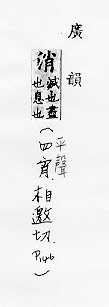 廣韻
消 滅也盡也息也
(平聲四宵.相邀切.P.146)